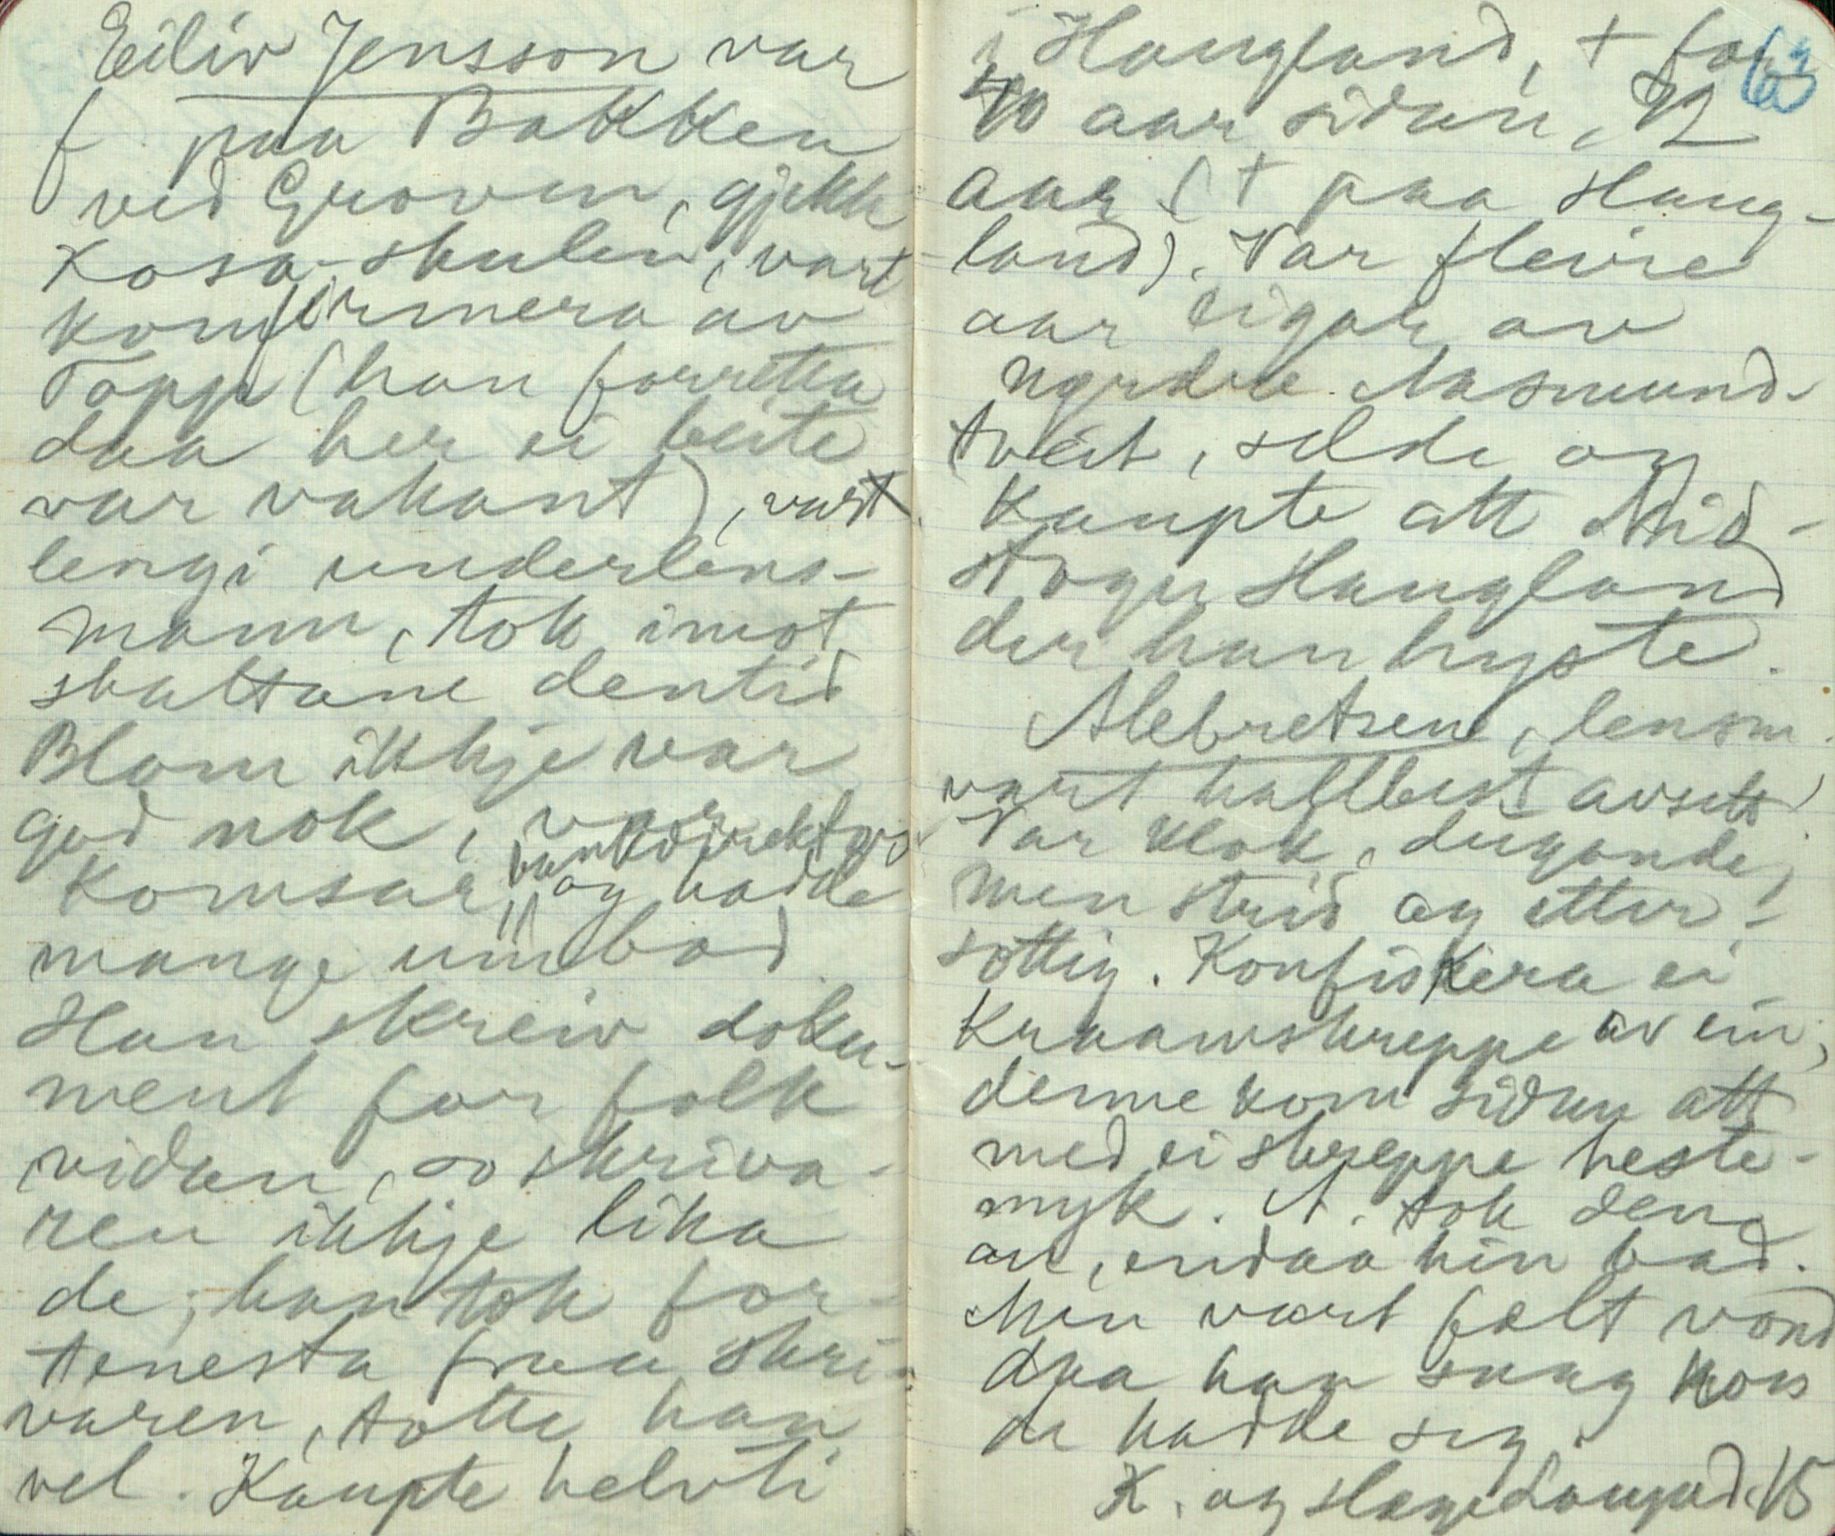 Eiliv Jensson var
f. paa Bakken
ved Groven, gjekk
Kosa-skulen, vart
konfirmera av
Topp (han forretta
daa her ei beite
var vakant), vart
lengi underlens-
mann, tok imot
skattane dentid
Blom ikkje var
god nok, var
bankdirektør
Komsar, og hadde
mange umbod.
Han skreiv doku-
ment for folk
vidan, so skriva-
ren ikkje lika
de; han tok for-
tenesta fraa skri-
varen, totte han
vel. Kaupte helvti
63
i Haugland, † for
40 aar sidan, 72
aar († paa Haug-
land). Var fleire
aar eigar av
nørdre Aasmund-
tveit, selde og
kaupte att Mid-
stogu Haugland
der han hyste.
Alebretsen, lensm.
vart halvbest avsett.
Var klok, dugande,
men strid og etter-
søttig. Konfiskera ei
Kraamskreppe av ein;
denne kom sidan att
med ei skreppe heste-
myk. A. tok den o
an, endaa hin bad.
Men vart fælt vond
daa han saag kors
de hadde seg.
K. og Hage Laugad. 15